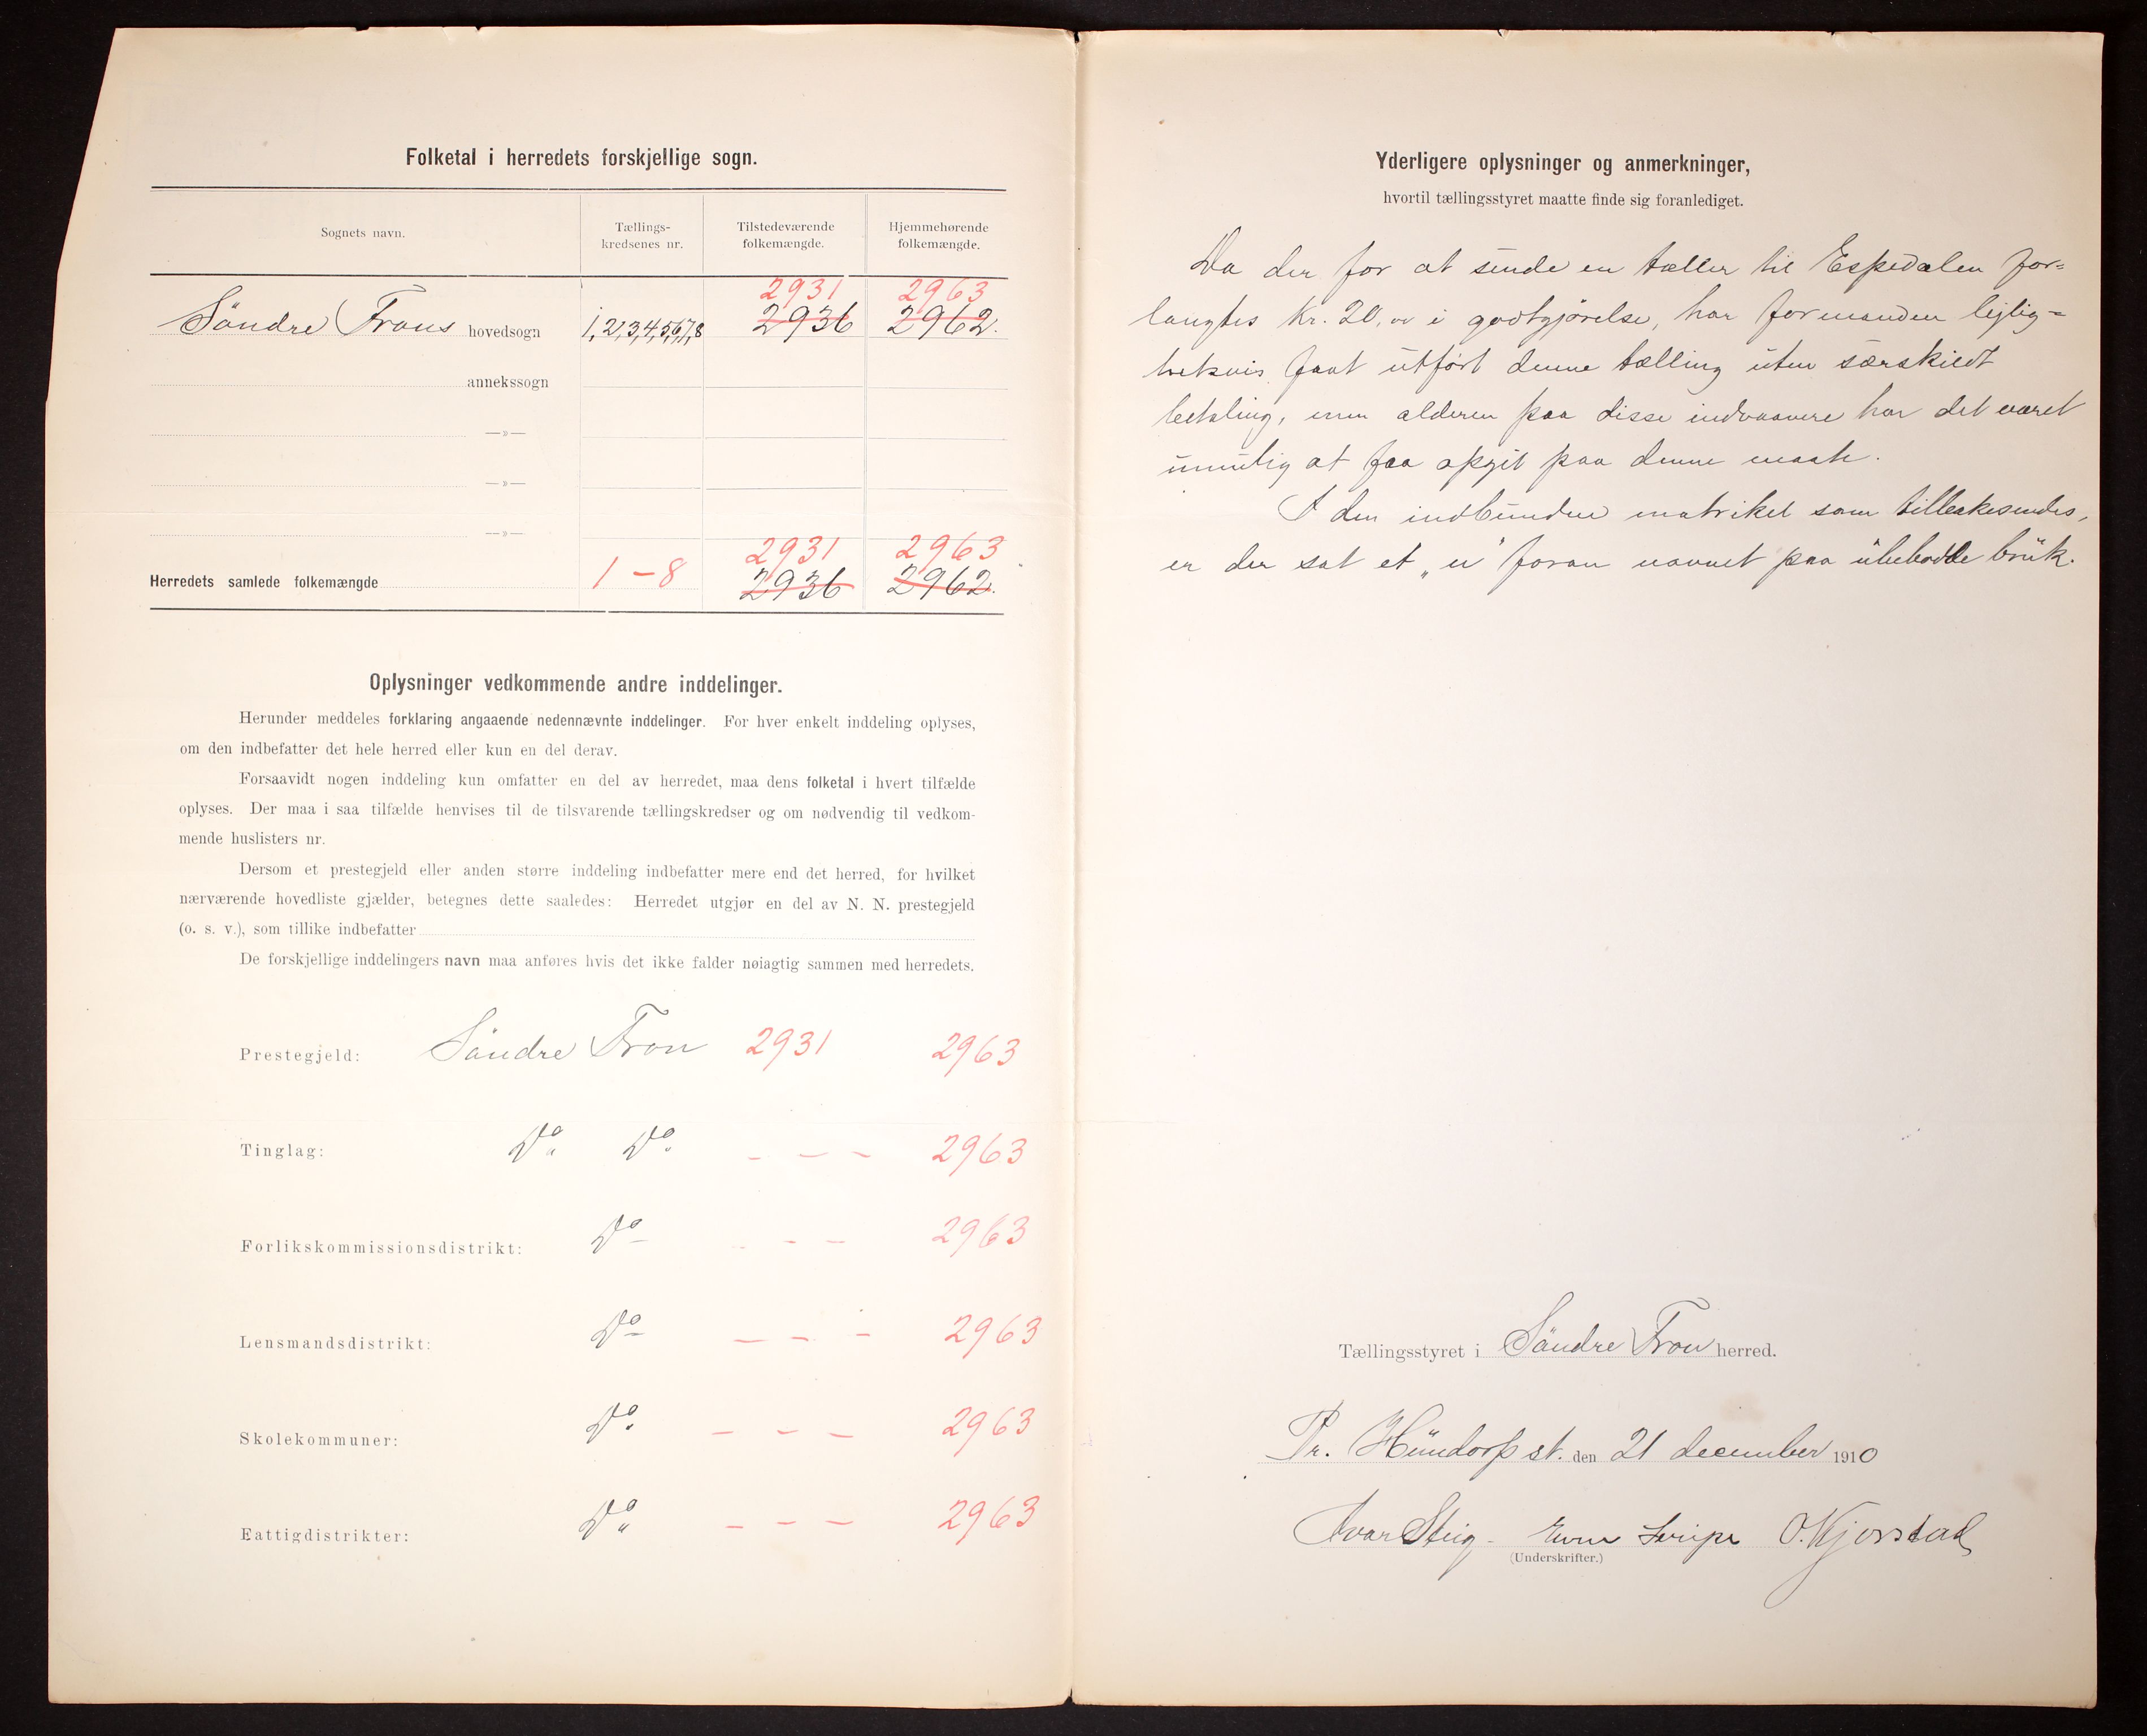 Folketal i herredets forskjellige sogn.
Sognets navn.
Tællings-
kredsenes nr.
Tilstedeværende
folkemængde.
Hjemmehørende
folkemængde.
2931 2963
Söndre Frons hovedsogn 1,2,3,4,5,6,7,8 2936 2962.
annekssogn
—»—
—»—
—»—
2931 2963
Herredets samlede folkemængde 1 – 8 2936 2962.
Oplysninger vedkommende andre inddelinger.
Herunder meddeles forklaring angaaende nedennævnte inddelinger. For hver enkelt inddeling oplyses,
om den indbefatter det hele herred eller kun en del derav.
Forsaavidt nogen inddeling kun omfatter en del av herredet, maa dens folketal i hvert tilfælde
oplyses. Der maa i saa tilfælde henvises til de tilsvarende tællingskredser og om nødvendig til vedkom-
mende huslisters nr.
Dersom et prestegjeld eller anden større inddeling indbefatter mere end det herred, for hvilket
nærværende hovedliste gjælder, betegnes dette saaledes: Herredet utgjør en del av N. N. prestegjeld
(o. s. v.), som tillike indbefatter
De forskjellige inddelingers navn maa anføres hvis det ikke falder nøiagtig sammen med herredets.
Prestegjeld: Söndre Fron 2931 2963
Tinglag: Do Do. – – – 2963
Forlikskommissionsdistrikt: Do – – – 2963
Lensmandsdistrikt: Do – – – 2963
Skolekommuner: Do. – – – 2963
Fattigdistrikter: Do – – – 2963
Yderligere oplysninger og anmerkninger,
hvortil tællingsstyret maatte finde sig foranlediget.
Da der for at sende en tæller til Espedalen for=
langtes Kr. 20,oo i godtgjörelse, har formanden lejlig=
hetsvis faat utfört denne tælling uten særskildt
betaling, men alderen paa disse indvaanere har det været
umulig at faa opgit paa denne maate.
I den indbundne matrikel som tilbakesendes,
er der sat et „u" foran navnet paa ubebodde bruk.
Tællingsstyret i Söndre Fron herred.
Pr. Hundorp st. den 21 december 1910
Ivar Steig O. Kjorstad
(Underskrifter.)